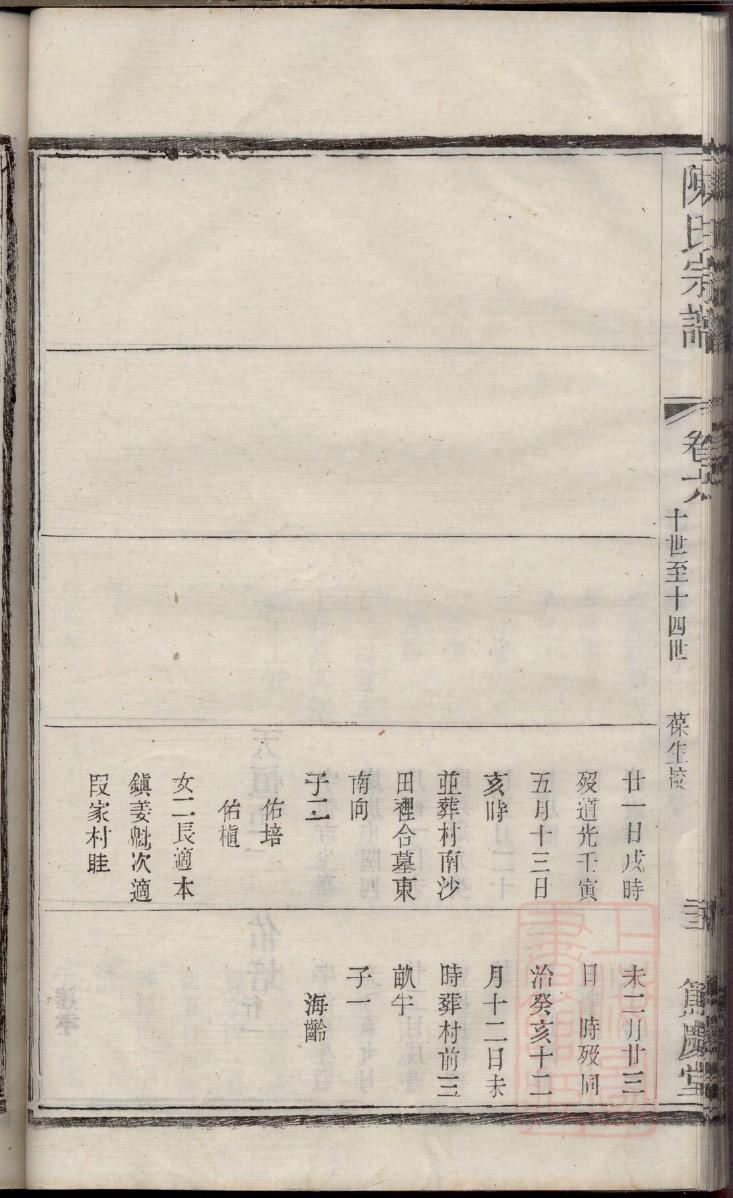 陳氏宗譜
卷六
十世至十四世
葆生
篤慶堂
廿一日戌時
歿道光壬寅
五月十三日
亥時
並葬村南沙
田裡合墓東
南向
子二
佑培
佑植
女二長適本
鎮姜魁次適
段家村眭
未二月廿三
日 時歿同
治癸亥十二
月十二日未
時葬村前三
畝半
子一
海齡